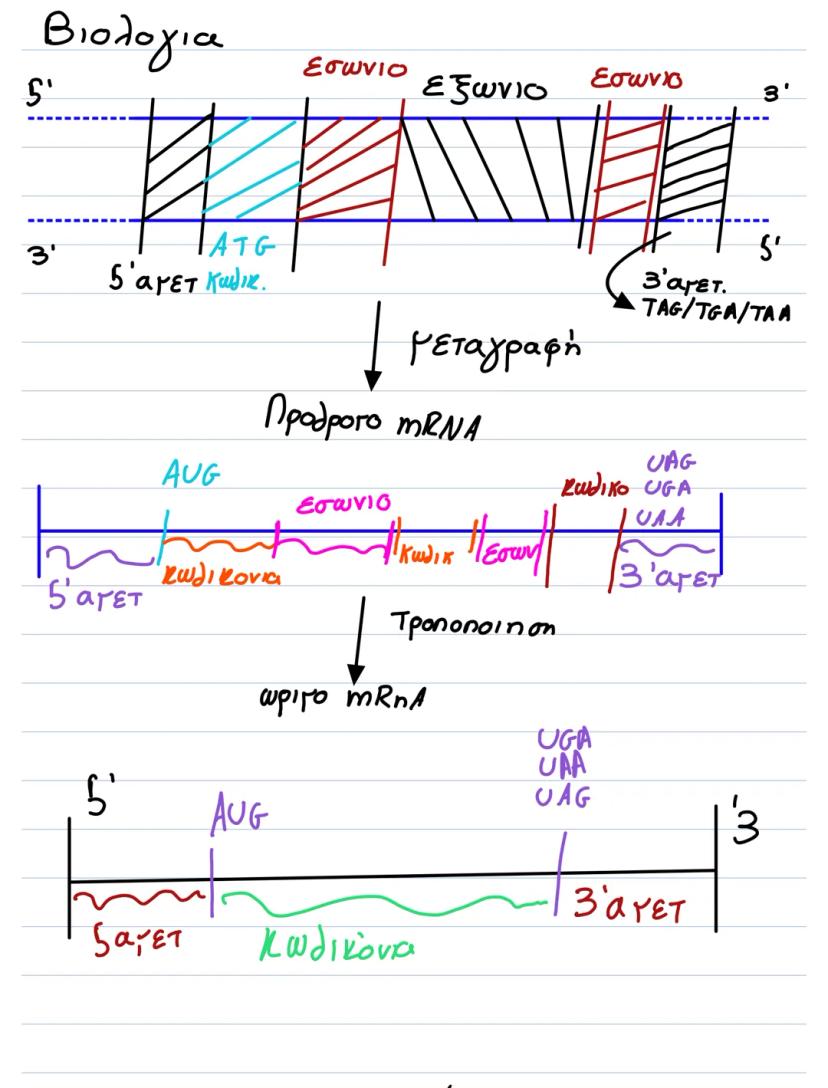 Βιολογια
εσωνιο
εξωνιο
εσωνιο
5'
3'
3'
5'
ATG
5'αμετ κωδικ.
3'αμετ.
TAG/TGA/TAA
μεταγραφή
Προδρομο mRNA
AUG
εσωνιο
κωδικο
UAG
UGA
UAA
κωδικονια
κωδικ
εσων
5'αμετ
3'αμετ
Τροποποιηση
ωριμο mRnA
5'
AUG
UGA
UAA
UAG
'3
5αμετ
κωδικόνια
3'αμετ